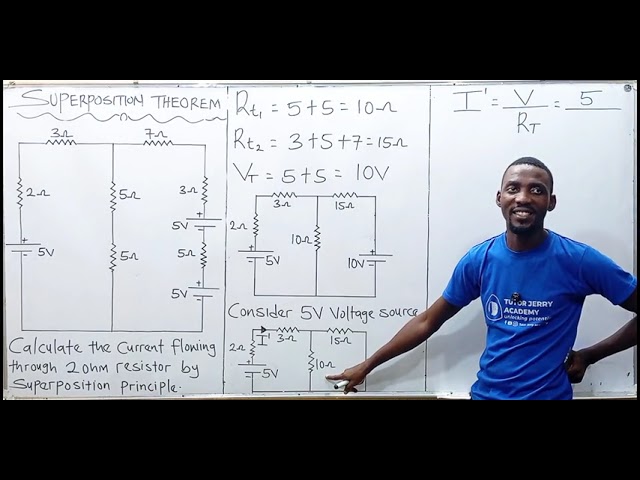 SUPERPOSITION THEOREM
3Ω
7Ω
2Ω
5Ω
3Ω
+
5V
5Ω
+
5V
5Ω
+
5V
Calculate the Current flowing
through 2 ohm resistor by
Superposition principle.
Rt₁ = 5+5 = 10Ω
Rt₂ = 3+5+7 = 15Ω
VT = 5+5 = 10V
3Ω
15Ω
2Ω
10Ω
+
5V
+
10V
Consider 5V Voltage source
I'
3Ω
15Ω
2Ω
10Ω
+
5V
I' = V/RT = 5
TUTOR JERRY
ACADEMY